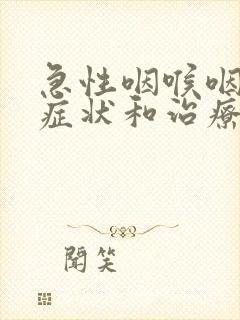 急性咽喉咽
症状和治疗
闻笑